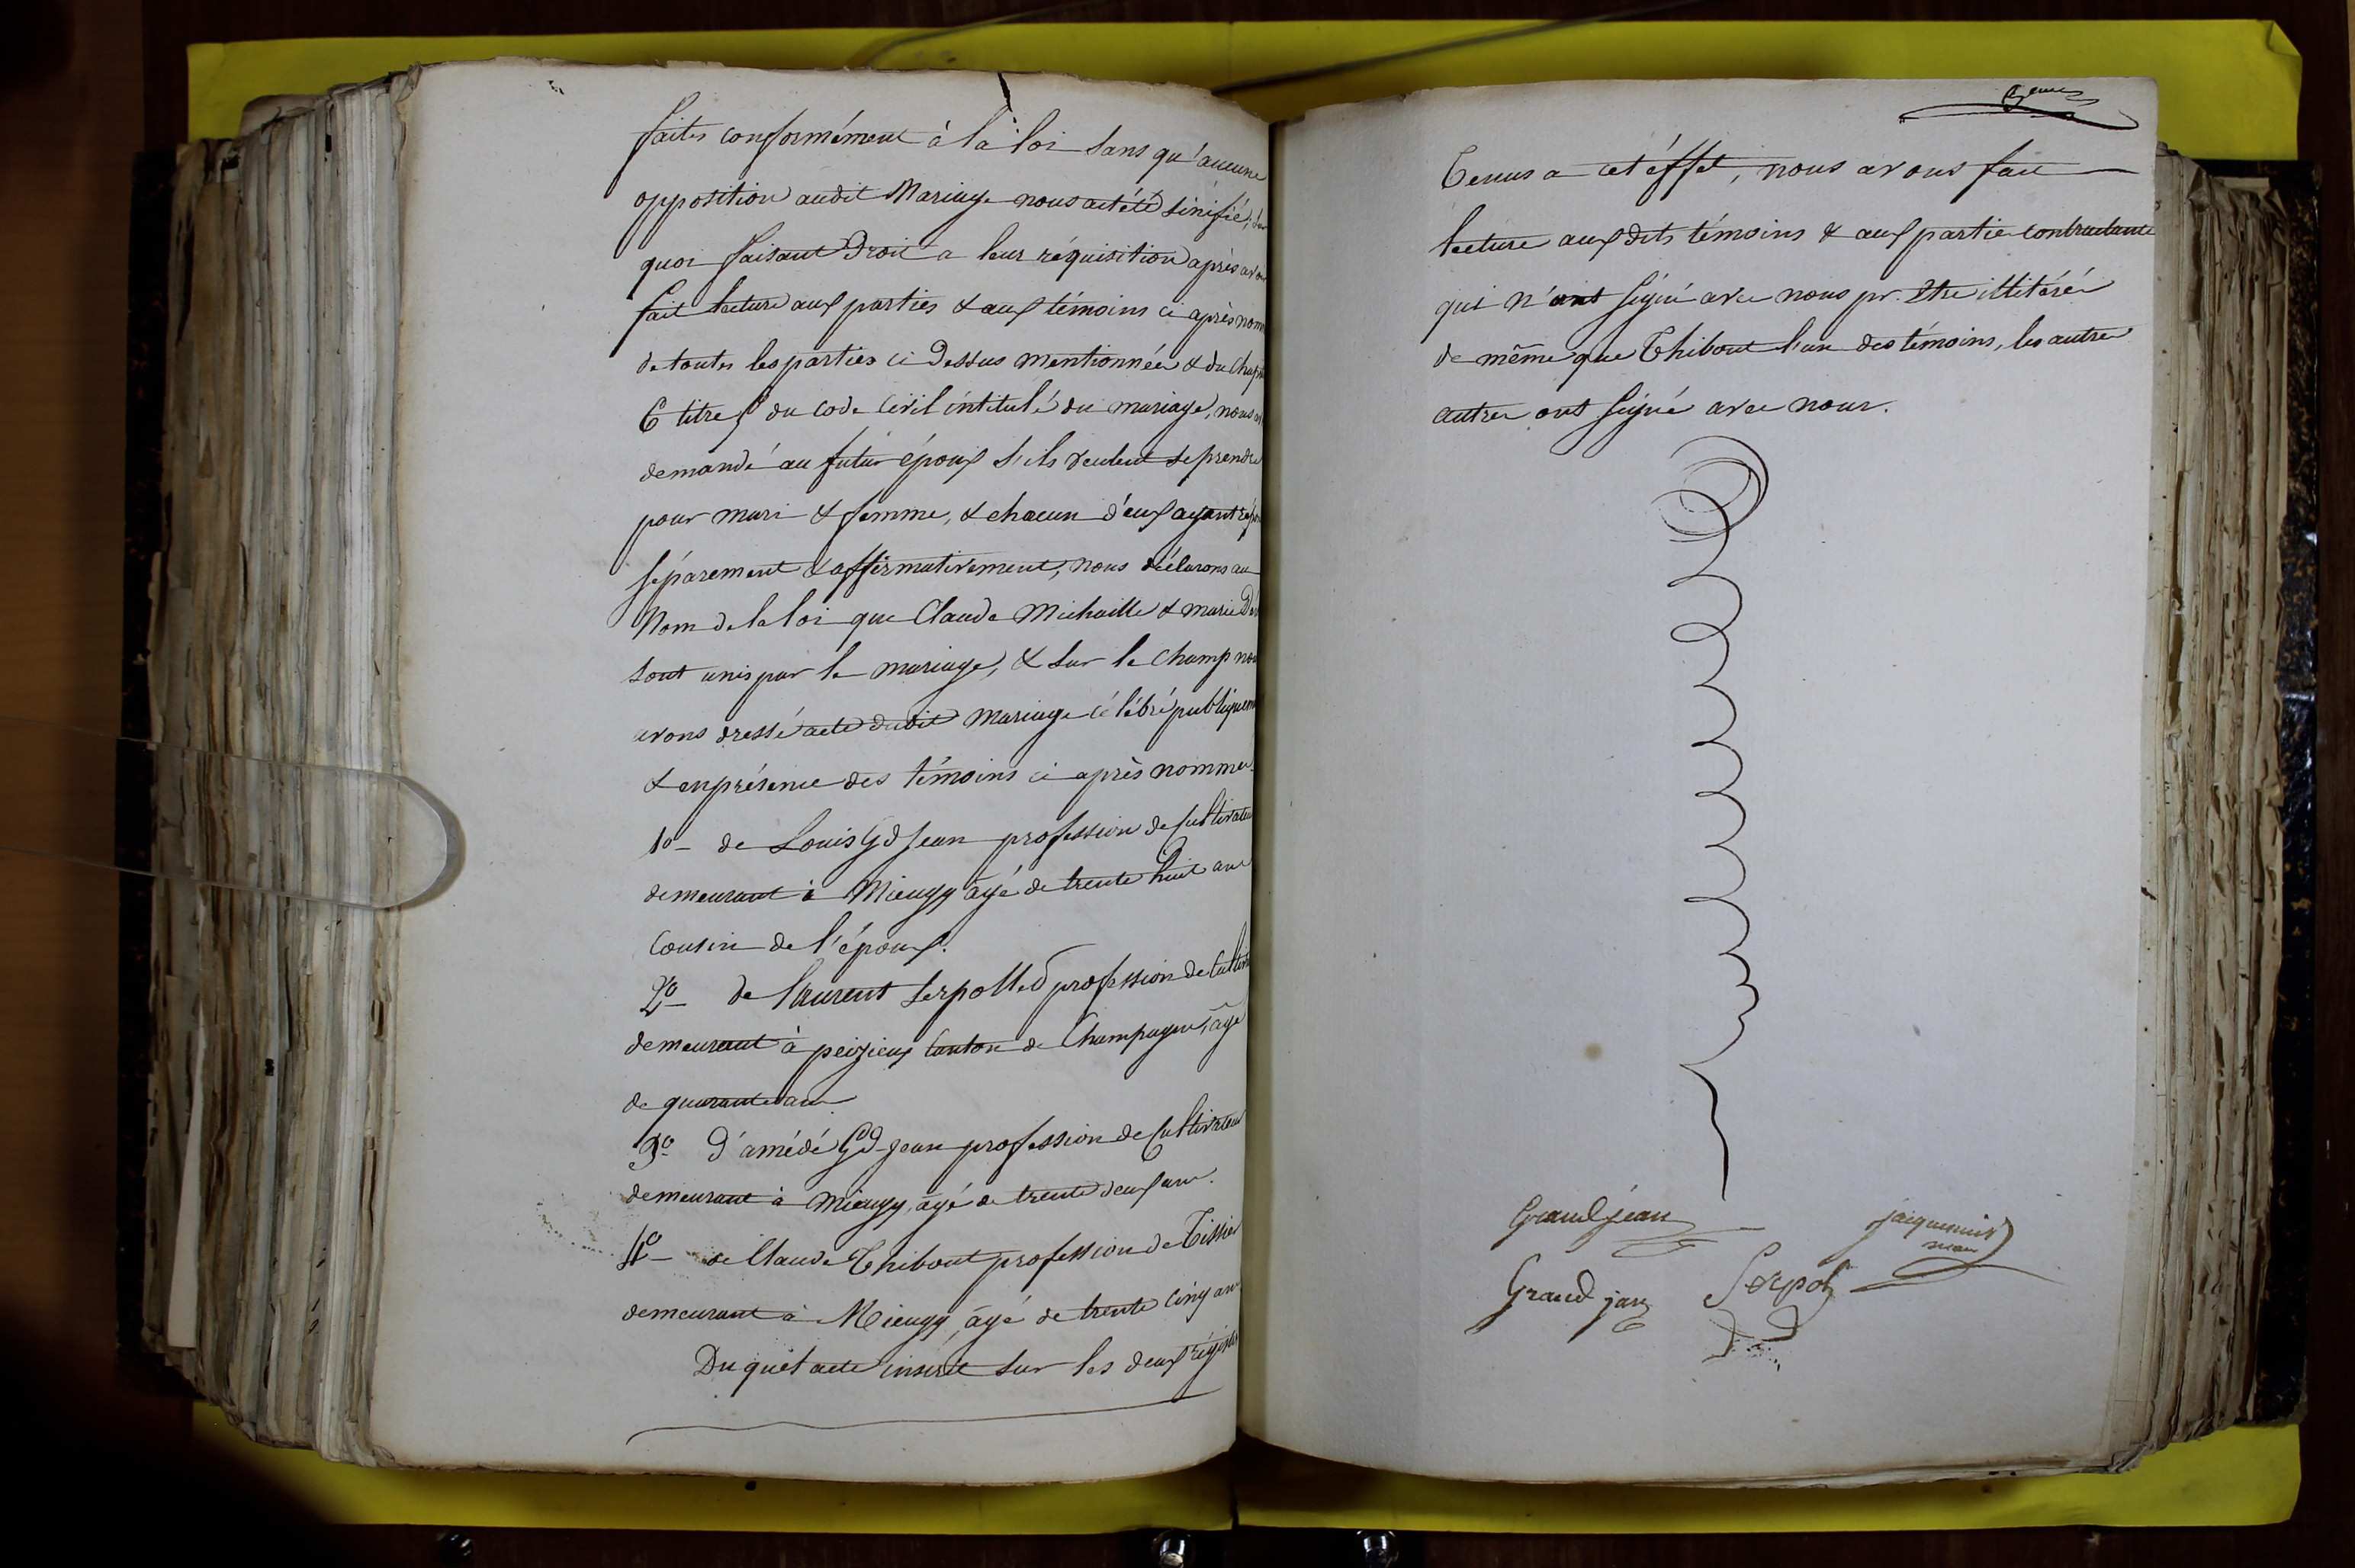 faites conformément à la loi sans qu'aucune
opposition audit Mariage nous ait été sinifié,
quoi faisant Droit a leur réquisition après avo
fait lecture aux parties & aux témoins ci après nom
de toutes les parties ci Dessus mentionnées & du Chapit
6 titre 5 du code Civil intitulé du mariage, nous
demandé au futur époux s'ils veulent se prendre
pour mari & femme, & chacun d'eux ayant répon
séparement & affirmativement, nous déclarons au
Nom de la loi que Claude Michaille & marie
sont unis par le mariage, & sur le champ nou
avons dressé acte dudit Mariage célébré publiquem
& en présence des témoins ci après nommés
1o- de Louis Gd Jean profession de Cultivateur
demeurant à Mieugy âgé de trente huit ans
Cousin de l'époux.
2o- de laurent Serpolled profession de Cultiv
demeurant à peizieux Canton de Champagne, âgé
de quarante ans
3o- D'amédé Gd-Jean profession de Cultivateur
demeurant à Mieugy, âgé de trente deux ans.
4o- de Claude Thibout profession de Tissier
demeurant à Mieugy, âgé de trente cinq ans
Duquel acte inséré sur les deux régistr
Tenus a cet éffet, nous avons fait
lecture aux dits témoins & aux partie contractante
qui n'ont signé avec nous pr. Etre illitérés
de même que Thibout l'un des témoins, les autres
autres ont signé avec nous.
Grandjean
jacquemin
maire
Grand jan
Serpol